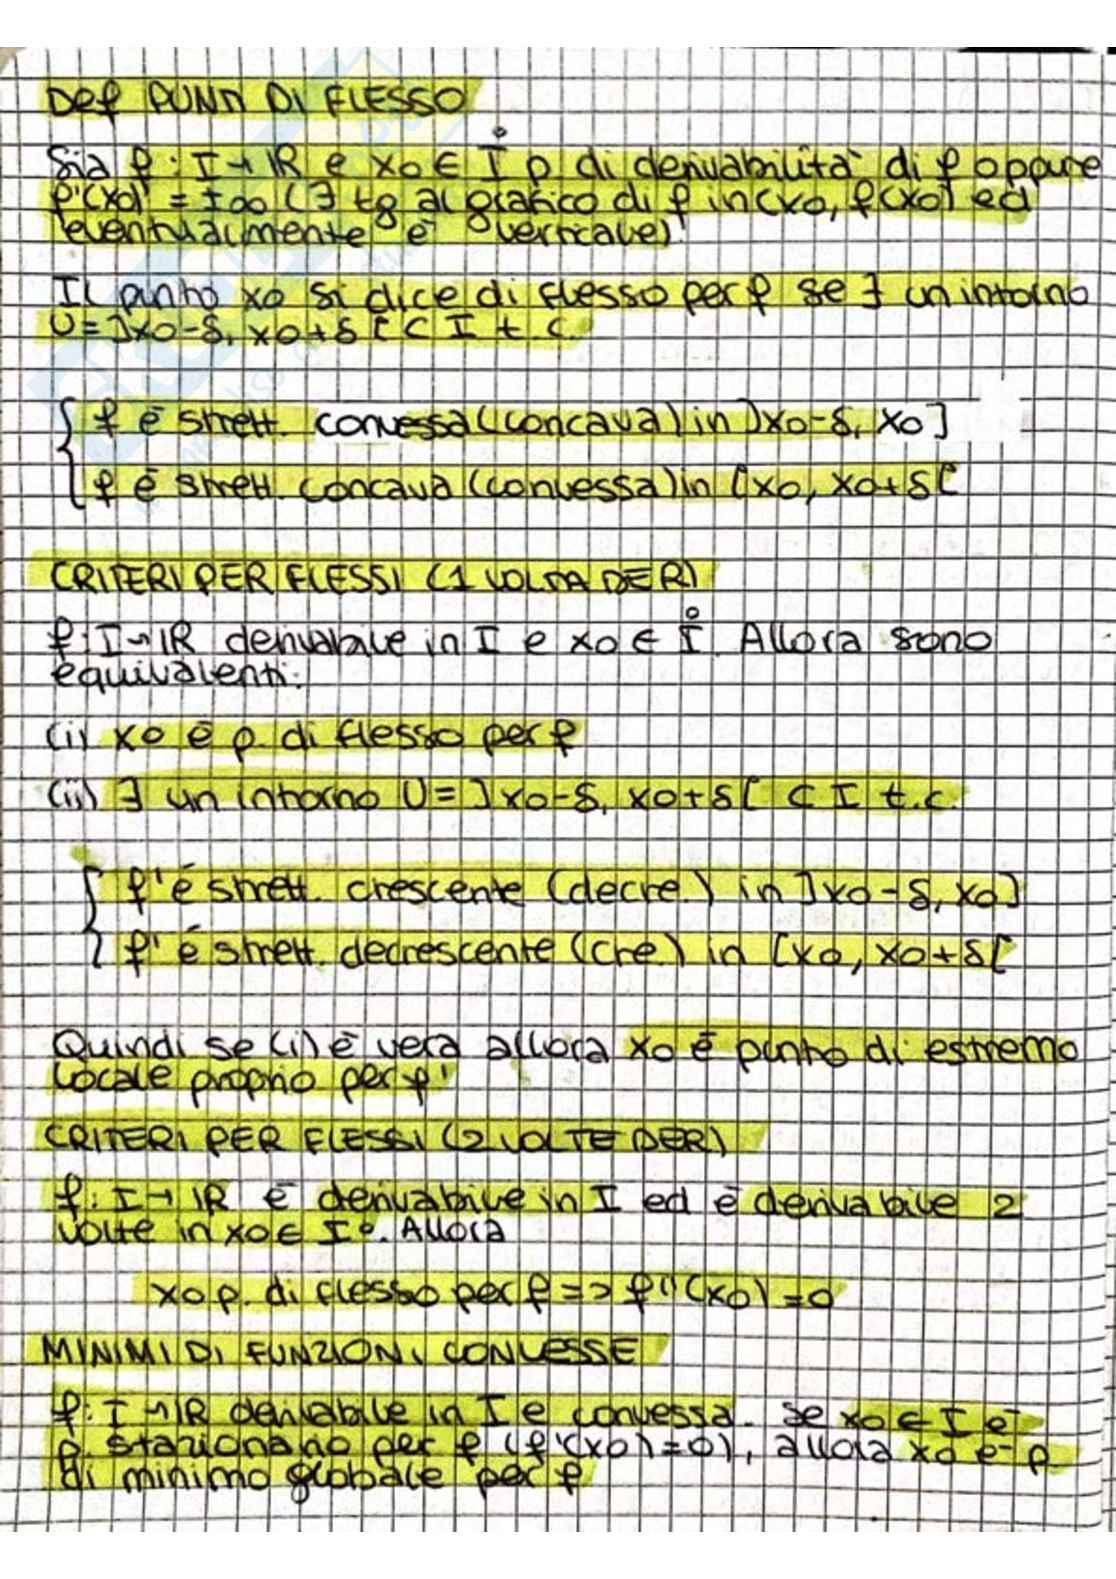 Def PUNTI DI FLESSO
Sia f: I→ℝ e x0 ∈ I̊ p di derivabilità di f oppure
f'(x0) = ±∞ (∃ tg al grafico di f in (x0, f(x0) ed
eventualmente è verticale)
Il punto x0 si dice di flesso per f se ∃ un intorno
U=]x0-δ, x0+δ[ ⊂ I t.c.
{ f è strett. convessa (concava) in ]x0-δ, x0]
f è strett. concava (convessa) in [x0, x0+δ[
CRITERI PER FLESSI (1 VOLTA DER)
f: I→ℝ derivabile in I e x0 ∈ I̊. Allora sono
equivalenti:
(i) x0 è p. di flesso per f
(ii) ∃ un intorno U=]x0-δ, x0+δ[ ⊂ I t.c.
{ f' è strett. crescente (decre.) in ]x0-δ, x0]
f' è strett. decrescente (cre.) in [x0, x0+δ[
Quindi se (i) è vera allora x0 è punto di estremo
locale proprio per f'
CRITERI PER FLESSI (2 VOLTE DER)
f: I→ℝ è derivabile in I ed è derivabile 2
volte in x0 ∈ I°. Allora
x0 p. di flesso per f => f''(x0)=0
MINIMI DI FUNZIONI CONVESSE
f: I→ℝ derivabile in I e convessa. Se x0 ∈ I è
p. stazionario per f (f'(x0)=0), allora x0 è p
di minimo globale per f